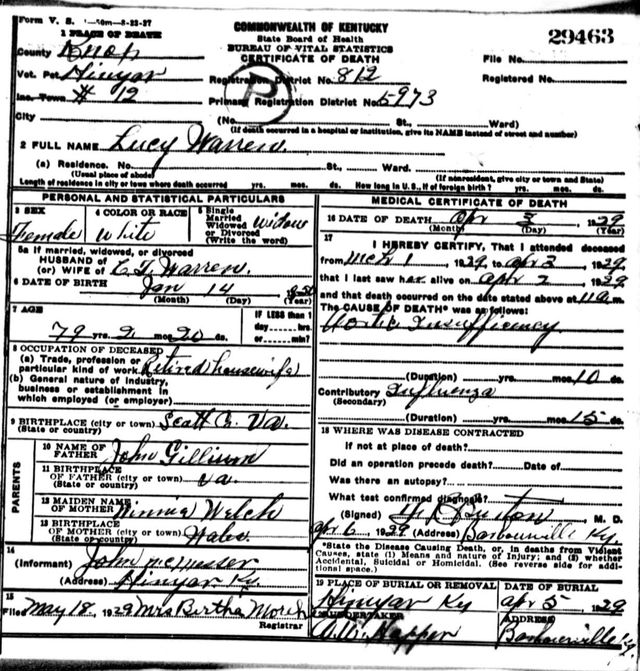 Form V. S. 1-50m-8-23-27
COMMONWEALTH OF KENTUCKY
State Board of Health
BUREAU OF VITAL STATISTICS
CERTIFICATE OF DEATH
29463
1 PLACE OF DEATH
County Knox
File No.
Vot. Pct Hinyar
Registration District No. 812
Registered No.
Inc. Town # 12
Primary Registration District No. 5973
City
(No. St., Ward)
(If death occurred in a hospital or institution, give its NAME instead of street and number)
2 FULL NAME Lucy Warren.
(a) Residence. No. St., Ward.
(Usual place of abode) (If nonresident, give city or town and State)
Length of residence in city or town where death occurred yrs. mos. ds. How long in U. S., if of foreign birth? yrs. mos. ds.
PERSONAL AND STATISTICAL PARTICULARS
3 SEX Female
4 COLOR OR RACE White
5 Single Married Widowed or Divorced (Write the word) Widow
5a If married, widowed, or divorced
HUSBAND of
(or) WIFE of Warren.
6 DATE OF BIRTH Jan 14
(Month) (Day) (Year)
7 AGE
79 yrs. 2 mos. 20 ds.
IF LESS than 1 day hrs. or min.?
8 OCCUPATION OF DECEASED
(a) Trade, profession or particular kind of work Retired housewife
(b) General nature of industry, business or establishment in which employed (or employer)
9 BIRTHPLACE (city or town) Scott Co. Va.
(State or country)
PARENTS
10 NAME OF FATHER John Gillium
11 BIRTHPLACE OF FATHER (city or town) Va.
(State or country)
12 MAIDEN NAME OF MOTHER Minnia Welch
13 BIRTHPLACE OF MOTHER (city or town) Wales
(State or country)
14
(Informant) John
(Address) Hinyar Ky.
15
Filed May 18, 1929 Mrs Bertha
Registrar
MEDICAL CERTIFICATE OF DEATH
16 DATE OF DEATH Apr 3 1929
(Month) (Day) (Year)
17
I HEREBY CERTIFY, That I attended deceased
from Mch 1 1929, to Apr 3, 1929
that I last saw her alive on Apr 2, 1929
and that death occurred on the date stated above at 11 a.m.
The CAUSE OF DEATH* was as follows:
Aortic Insufficiency
(Duration) yrs. mos. 10 ds.
Contributory Influenza
(Secondary)
(Duration) yrs. mos. 15 ds.
18 WHERE WAS DISEASE CONTRACTED
if not at place of death?
Did an operation precede death? Date of
Was there an autopsy?
What test confirmed diagnosis?
(Signed) M. D.
Apr 6, 1929 (Address) Barbourville Ky.
*State the Disease Causing Death, or, in deaths from Violent
Causes, state (1) Means and nature of Injury; and (2) whether
Accidental, Suicidal or Homicidal. (See reverse side for additional space.)
19 PLACE OF BURIAL OR REMOVAL
Hinyar Ky
DATE OF BURIAL
Apr 5 1929
20 UNDERTAKER
ADDRESS
Barbourville Ky.